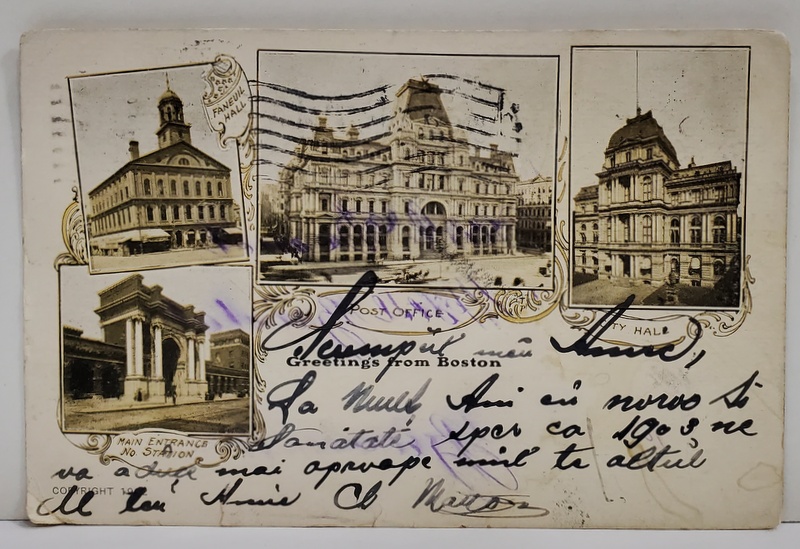 FANEUIL
HALL
POST OFFICE
TY HALL
Greetings from Boston
MAIN ENTRANCE
NO. STATION
COPYRIGHT
Scumpul meu Amic,
La Mulți Ani cu noroc Si
Sanătate sper ca 1903 ne
va a mai aproape unul de altul
Al tău Amic